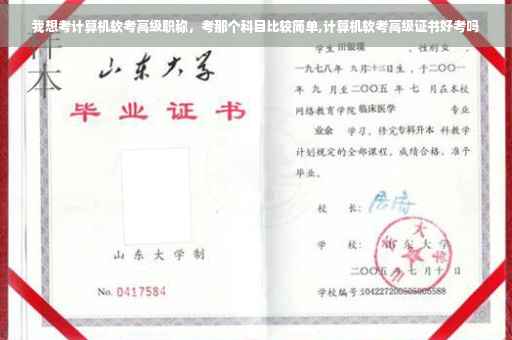 我想考计算机软考高级职称，考那个科目比较简单,计算机软考高级证书好考吗
样本
山东大学
毕业证书
山东大学制
No. 0417584
学生
性别女，
一九七八年 九月十二日生，于二〇〇一
年 九 月至二〇〇五 年 七 月在本校
网络教育学院 临床医学 专业
业余 学习，修完专科升本 科教学
计划规定的全部课程，成绩合格，准予
毕业。
校 长：
学 校：山东大学
二〇〇五 年 七 月 十 日
学校编号:104227200505005588